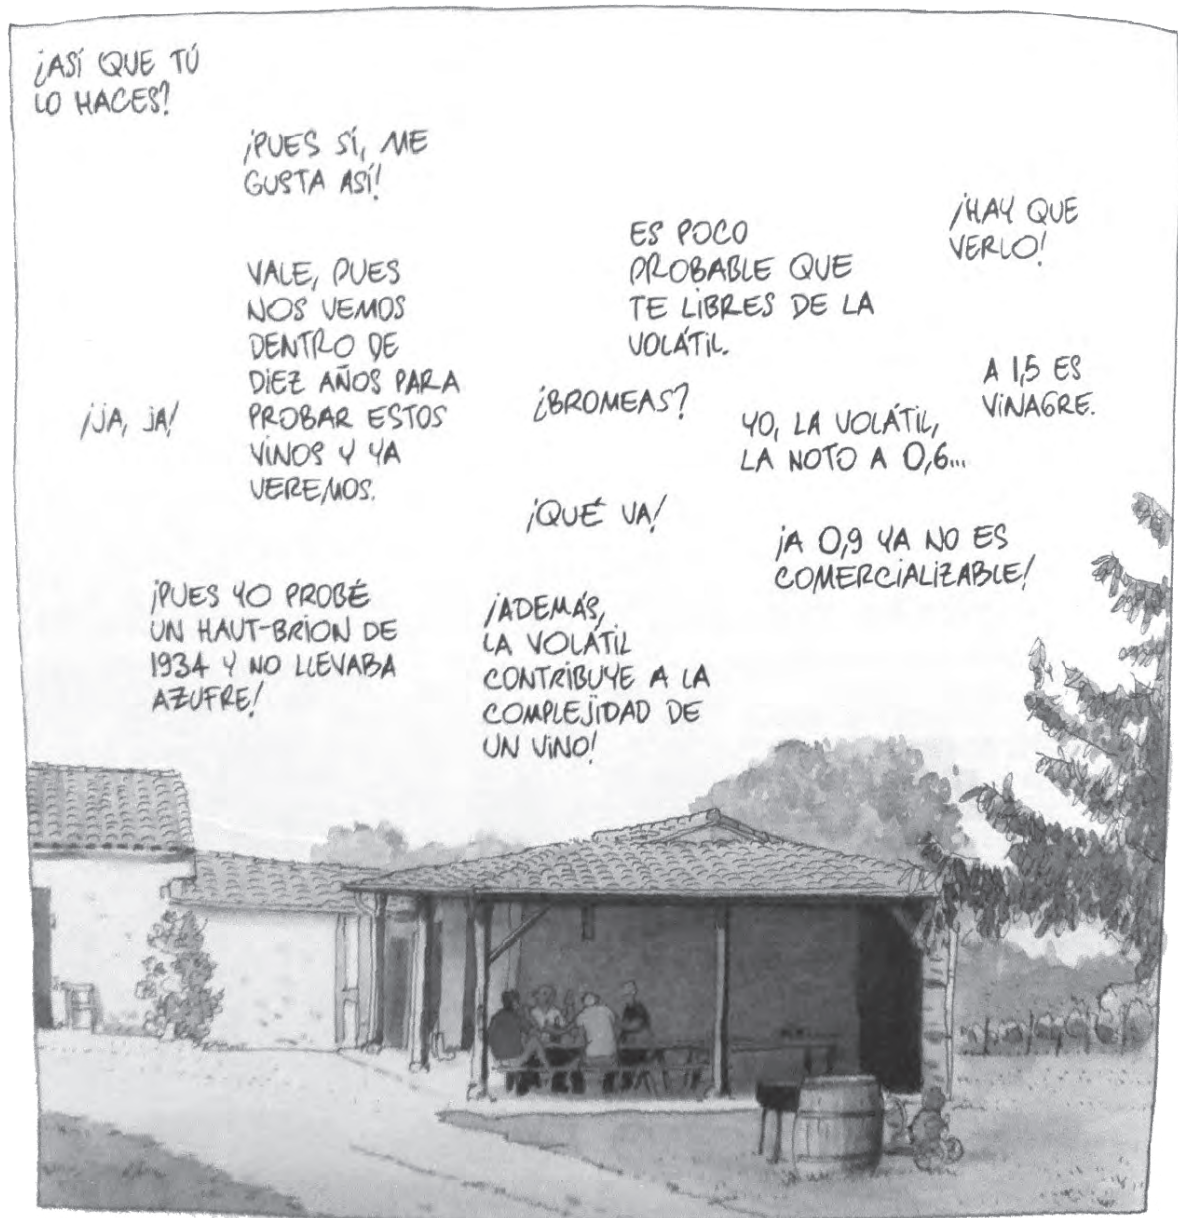 ¿ASÍ QUE TÚ
LO HACES?
¡PUES SÍ, ME
GUSTA ASÍ!
VALE, PUES
NOS VEMOS
DENTRO DE
DIEZ AÑOS PARA
PROBAR ESTOS
VINOS Y YA
VEREMOS.
¡JA, JA!
¡PUES YO PROBÉ
UN HAUT-BRION DE
1934 Y NO LLEVABA
AZUFRE!
ES POCO
PROBABLE QUE
TE LIBRES DE LA
VOLÁTIL.
¿BROMEAS?
¡QUÉ VA!
¡ADEMÁS,
LA VOLÁTIL
CONTRIBUYE A LA
COMPLEJIDAD DE
UN VINO!
¡HAY QUE
VERLO!
A 1,5 ES
VINAGRE.
YO, LA VOLÁTIL,
LA NOTO A 0,6...
¡A 0,9 YA NO ES
COMERCIALIZABLE!